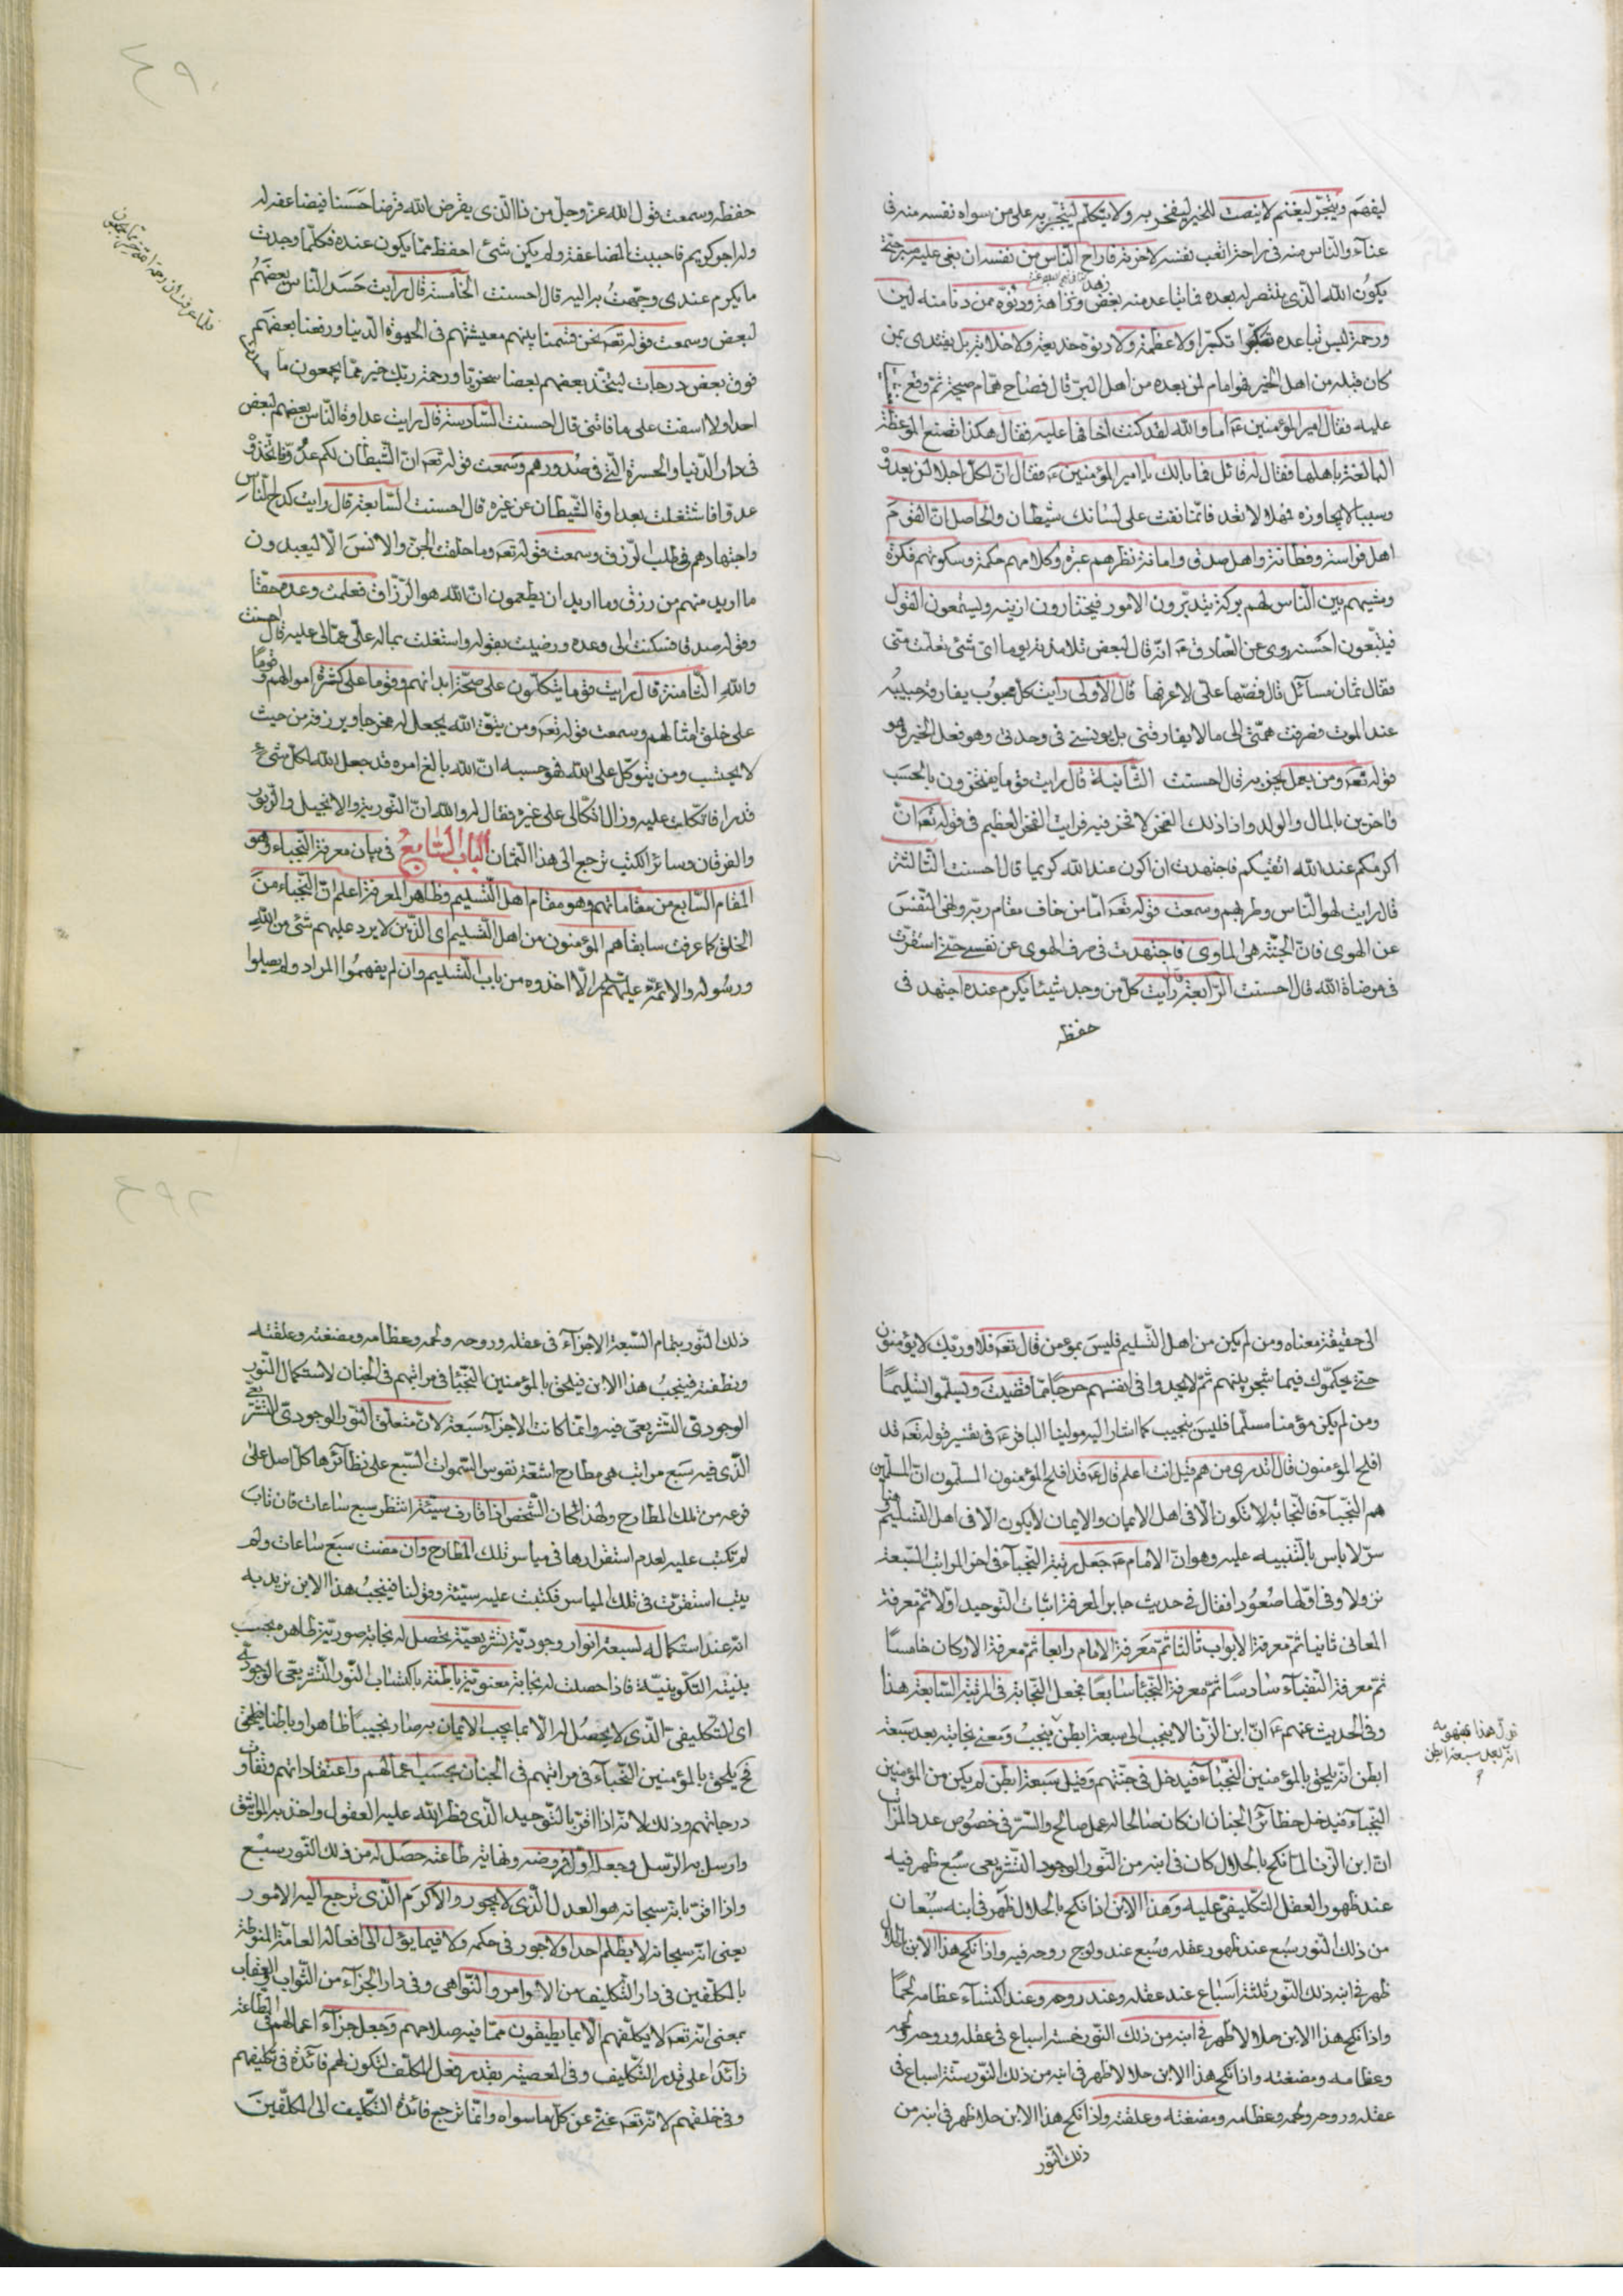 ليفهم ويتجر ليغنم لا ينصت للخير ليفخر به ولا يتكلم ليتجبر به على من سواه نفسه منه فى
عناء والناس منه فى راحة اتعب نفسه لاخرته فاراح الناس من نفسه ان بغى عليه صبر حتى
يكون الله الذى ينتصر له بعده ممن تباعد منه بغض ونزاهة ودنوه ممن دنا منه لين
ورحمة ليس تباعده تكبرا ولا عظمة ولا دنوه خديعة ولا خلابة بل يقتدى بمن
كان قبله من اهل الخير فهو امام لمن بعده من اهل البر قال فصاح همام صيحة ثم وقع مغشيا
عليه فقال امير المؤمنين ع اما والله لقد كنت اخافها عليه فقال هكذا تصنع الموعظة
البالغة باهلها فقال له قائل فما بالك يا امير المؤمنين ع فقال ان لكل اجلا لن يعدوه
وسببا لا يجاوزه فمهلا لا تعد فانما نفث على لسانك شيطان والحاصل ان القوم
اهل فراسة وفطانة واهل صدق وامانة نظرهم عبرة وكلامهم حكمة وسكوتهم فكرة
ومشيهم بين الناس لهم بركة يتدبرون الامور فيختارون ازينه ويستمعون القول
فيتبعون احسنه روى عن الصادق ع انه قال لبعض تلامذته يوما اى شئ تعلمت منى
فقال ثمان مسائل قال قصها على لاعرفها قال الاولى رايت كل محبوب يفارقه حبيبه
عند الموت فصرفت همتى الى ما لا يفارقنى بل يونسنى فى وحدتى وهو فعل الخير وهو
قوله تعه ومن يعمل يجز به قال احسنت الثانية قال رايت قوما يفتخرون بالحسب
واخرين بالمال والولد واذا ذلك الفخر لا فخر فيه فرايت الفخر العظيم فى قوله تعه ان
اكرمكم عند الله اتقيكم فاجتهدت ان اكون عند الله كريما قال احسنت الثالثة
قال رايت لهو الناس وطربهم وسمعت قوله تعه اما من خاف مقام ربه ونهى النفس
عن الهوى فان الجنة هى الماوى فاجتهدت فى صرف الهوى عن نفسى حتى استقرت
فى مرضاة الله قال احسنت الرابعة رايت كل من وجد شيئا يكرم عنده اجتهد فى
حفظه
حفظه وسمعت قول الله عز وجل من ذا الذى يقرض الله قرضا حسنا فيضاعفه له
وله اجر كريم فاحببت المضاعفة ولم يكن شئ احفظ مما يكون عنده فكلما وجدت
ما يكرم عندى وجهت به اليه قال احسنت الخامسة قال رايت حسد الناس بعضهم
لبعض وسمعت قوله تعه نحن قسمنا بينهم معيشتهم فى الحيوة الدنيا ورفعنا بعضهم
فوق بعض درجات ليتخذ بعضهم بعضا سخريا ورحمة ربك خير مما يجمعون ما حسدت
احدا ولا اسفت على ما فاتنى قال احسنت السادسة قال رايت عداوة الناس بعضهم لبعض
فى دار الدنيا والحسرة التى فى صدورهم وسمعت قوله تعه ان الشيطان لكم عدو فاتخذوه
عدوا فاشتغلت بعداوة الشيطان عن غيره قال احسنت السابعة قال رايت كدح الناس
واجتهادهم فى طلب الرزق وسمعت قوله تعه وما خلقت الجن والانس الا ليعبدون
ما اريد منهم من رزق وما اريد ان يطعمون ان الله هو الرزاق فعلمت وعده حقا
وقوله صدقا فسكنت الى وعده ورضيت بقوله واشتغلت بما له على عما لى عليه قال احسنت
والله الثامنة قال رايت قوما يتكلون على صحة ابدانهم وقوما على كثرة اموالهم وقوما
على خلق امثالهم وسمعت قوله تعه ومن يتق الله يجعل له مخرجا ويرزقه من حيث
لا يحتسب ومن يتوكل على الله فهو حسبه ان الله بالغ امره قد جعل الله لكل شئ
قدرا فاتكلت عليه وزال اتكالى على غيره فقال له والله ان التورية والانجيل والزبور
والفرقان وسائر الكتب ترجع الى هذا الثمان الباب السابع فى بيان معرفة النجباء وهو
المقام السابع من مقاماتهم وهو مقام اهل التسليم وظاهر المعرفة اعلم ان النجباء من
الخلق كما عرفت سابقا هم المؤمنون من اهل التسليم اى الذين لا يرد عليهم شئ من الله
ورسوله والائمة عليهم الا اخذوه من باب التسليم وان لم يفهموا المراد ولم يصلوا
الى حقيقة معناه ومن لم يكن من اهل التسليم فليس بمومن قال تعه فلا وربك لا يؤمنون
حتى يحكموك فيما شجر بينهم ثم لا يجدوا فى انفسهم حرجا مما قضيت ويسلموا تسليما
ومن لم يكن مؤمنا مسلما فليس بنجيب كما اشار اليه مولينا الباقر ع فى تفسير قوله تعه قد
افلح المؤمنون قال اتدرى من هم قيل انت اعلم قال ع قد افلح المؤمنون المسلمون ان المسلمين
هم النجباء فالنجابة لا تكون الا فى اهل الايمان والايمان لا يكون الا فى اهل التسليم
سر لا باس بالتنبيه عليه وهو ان الامام ع جعل رتبة النجباء فى اخر المراتب السبعة
نزولا وفى اولها صعودا فقال فى حديث جابر المعرفة اثبات التوحيد اولا ثم معرفة
المعانى ثانيا ثم معرفة الابواب ثالثا ثم معرفة الامام رابعا ثم معرفة الاركان خامسا
ثم معرفة النقباء سادسا ثم معرفة النجبا سابعا فجعل النجابة فى المرتبة السابعة هذا
وفى الحديث عنهم ع ان ابن الزنا لا ينجب الى سبعة ابطن ينجب ومعنى نجابته بعد سبعة
ابطن انه يلحق بالمؤمنين النجباء فيدخل فى جنتهم وقبل سبعة ابطن لم يكن من المؤمنين
النجباء فيدخل حظائر الجنان ان كان صالحا له عمل صالح والسر فى خصوص عدد المراتب
ان ابن الزنا لما نكح بالحلال كان فى ابنه من النور الوجود التشريعى سبع ظهر فيه
عند ظهور العقل التكليفى عليه وهذا الابن اذا نكح بالحلال ظهر فى ابنه سبعان
من ذلك النور سبع عند ظهور عقله وسبع عند ولوج روحه فيه واذا نكح هذا الابن الحلال
ظهر فى ابنه ذلك النور ثلثة اسباع عند عقله وعند روحه وعند اكتساء عظامه لحما
واذا نكح هذا الابن حلالا ظهر فى ابنه من ذلك النور خمسة اسباع فى عقله وروحه ولحمه
وعظامه ومضغته واذا نكح هذا الابن حلالا ظهر فى ابنه من ذلك النور ستة اسباع فى
عقله وروحه ولحمه وعظامه ومضغته وعلقته واذا نكح هذا الابن حلالا ظهر فى ابنه من
ذلك النور
قوله هذا مفهومه
انه بعد سبعة ابطن
ذلك النور بتمام السبعة الاجزاء فى عقله وروحه ولحمه وعظامه ومضغته وعلقته
ونطفته فينجب هذا الابن فيلحق بالمؤمنين النجبا فى مراتبهم فى الجنان لاستكمال النور
الوجودى التشريعى فيه وانما كانت الاجزاء سبعة لان متعلق النور الوجودى التشريعى
الذى فيه سبع مراتب هى مطارح اشعة نفوس السموات السبع على نظائرها كل اصل على
فرعه من تلك المطارح ولهذا كان الشخص اذا قارف سيئة انتظر سبع ساعات فان تاب
لم تكتب عليه لعدم استقرارها فى مياس تلك المطارح وان مضت سبع ساعات ولم
يتب استقرت فى تلك المياس فكتبت عليه سيئة وقولنا فينجب هذا الابن نريد به
انه عند استكماله لسبعة انوار وجودية تشريعية تحصل له نجابة صورية ظاهرة بحسب
بنيته التكوينية فاذا حصلت له نجابة معنوية باطنة باكتساب النور التشريعى الوجودى
اى التكليفى الذى لا يحصل له الا بما يجب الايمان به صار نجيبا ظاهرا وباطنا فيلحق
فح يلحق بالمؤمنين النجباء فى مراتبهم فى الجنان بحسب اعمالهم واعتقاداتهم وتفاوت
درجاتهم وذلك لانه اذا اقر بالتوحيد الذى فطر الله عليه العقول واخذ به المواثيق
وارسل به الرسل وجعل اول فروضه ونهاية طاعته حصل له من ذلك النور سبع
واذا اقر بانه سبحانه هو العدل الذى لا يجور والاكرم الذى ترجع اليه الامور
يعنى انه سبحانه لا يظلم احدا ولا جور فى حكمه ولا فيما يؤل الى افعاله العامة المنوطة
بالمكلفين فى دار التكليف من الاوامر والنواهى وفى دار الجزاء من الثواب والعقاب
بمعنى انه تعه لا يكلفهم الا بما يطيقون مما فيه صلاحهم وجعل جزاء اعمالهم فى الطاعة
زائدا على قدر التكليف وفى المعصية بقدر فعل المكلف لتكون لهم فائدة فى تكليفهم
وفى خلقهم لانه تعه غنى عن كل ما سواه وانما ترجع فائدة التكليف الى المكلفين